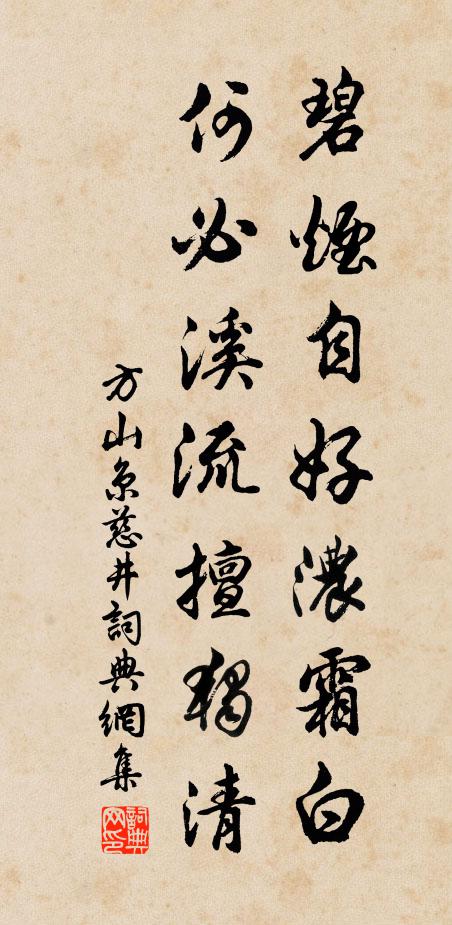 碧煙自好濃霜白
何必溪流擅獨清
方山京慈井詞典網集
詞典网印